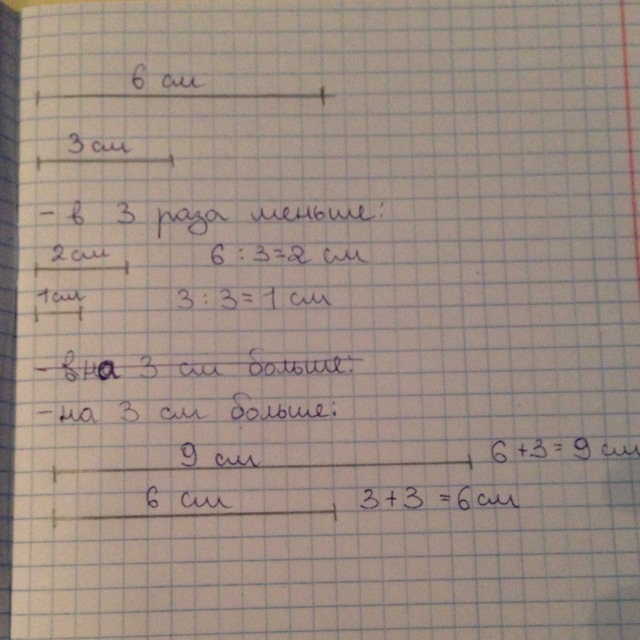 6 см
3 см
- в 3 раза меньше:
2 см 6 : 3 = 2 см
1 см 3 : 3 = 1 см
- вна 3 см больше:
- на 3 см больше:
9 см 6 + 3 = 9 см
6 см 3 + 3 = 6 см